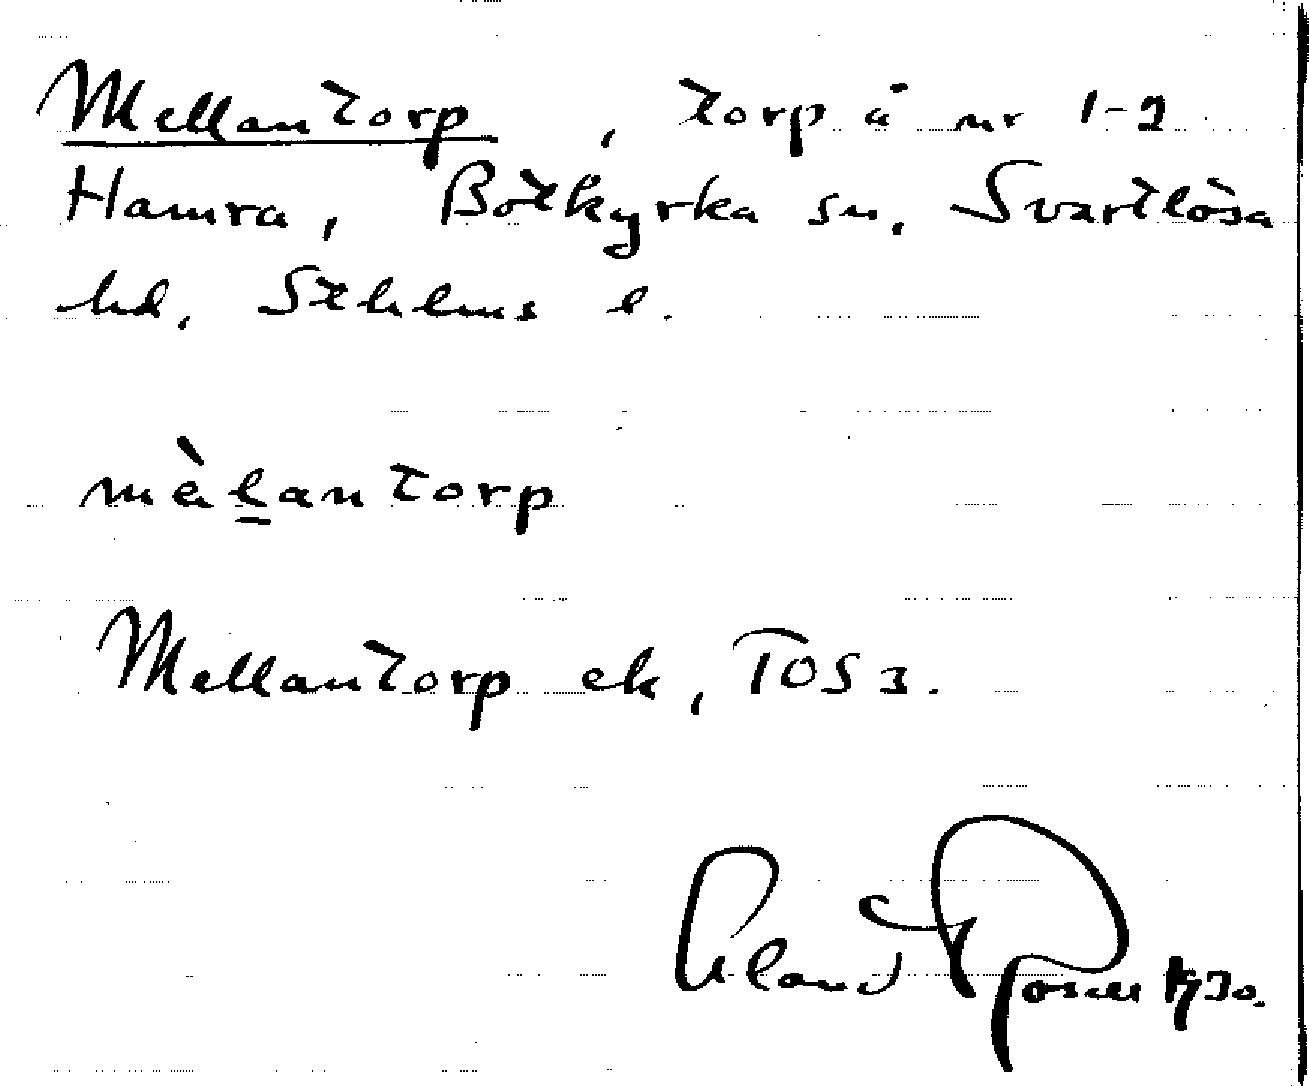 Mellantorp, torp å nr 1-2
Hamra, Botkyrka sn, Svartlösa
hd, Sthlms l.
mèlantorp
Mellantorp ek, TOS 3.
Erland Rosell 1930.